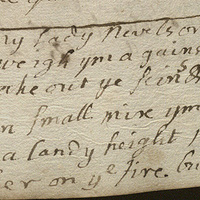 my Lady Nevelson
weigh ym a gains
take out ye sein
n small mix ym
a Candy height
er on ye fire. bu